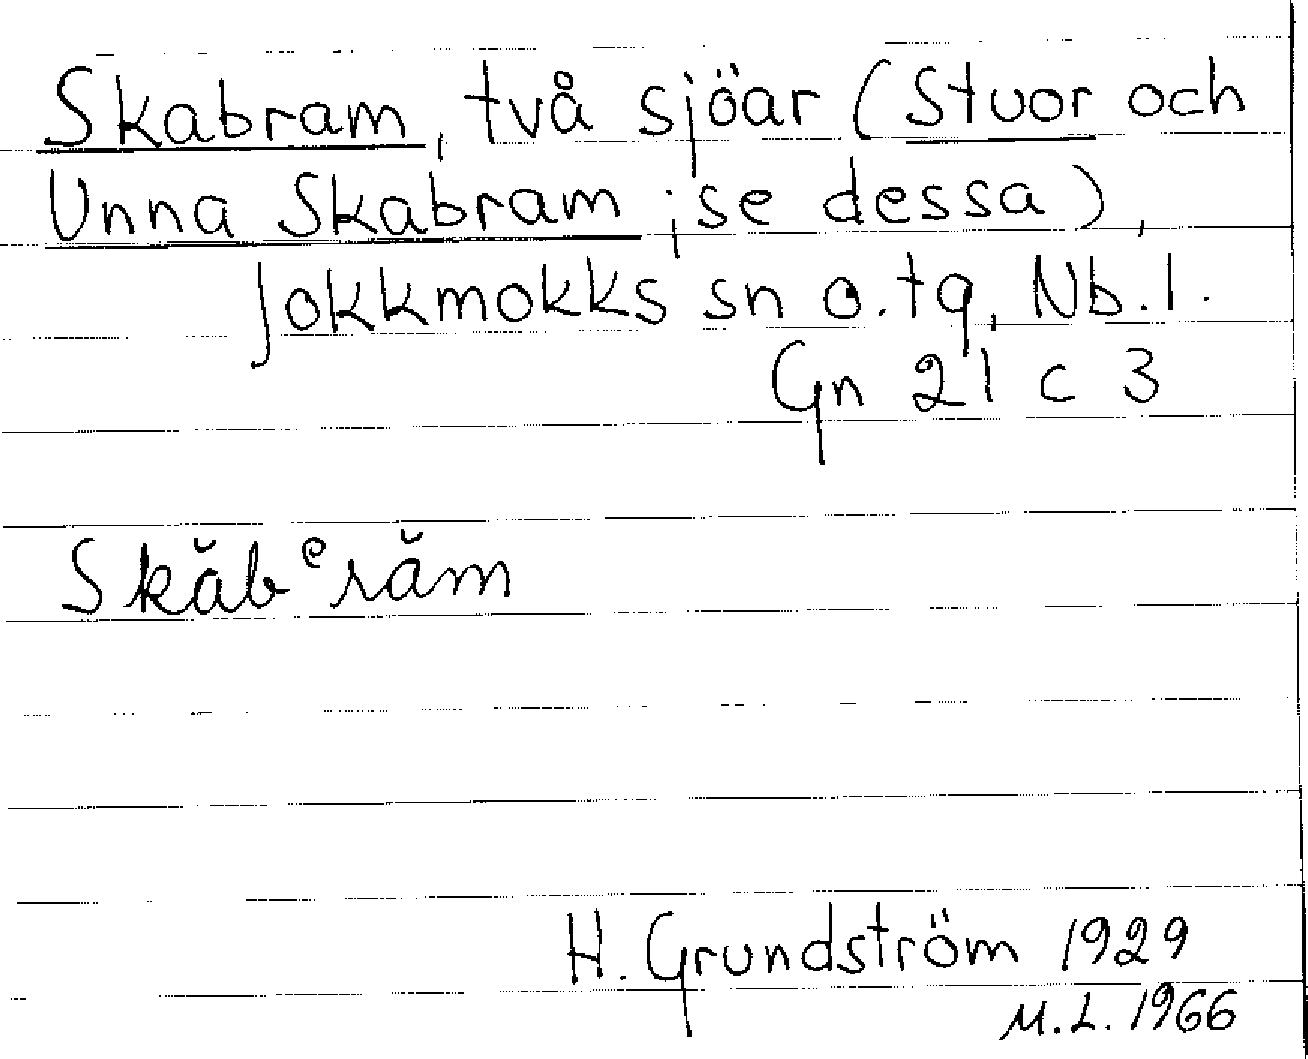 Skabram, två sjöar (Stuor och
Unna Skabram; se dessa),
Jokkmokks sn o. tg, Nb. l.
Gn 21 c 3
Skăbᵉrăm
H. Grundström 1929
M.L. 1966